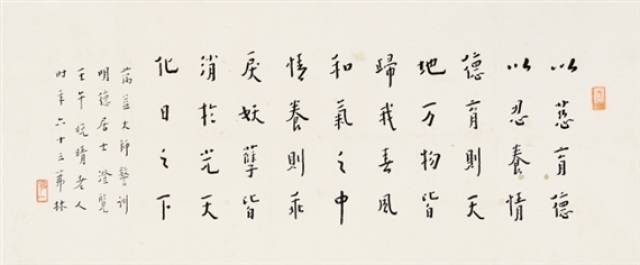 以慈育德
以忍養情
德育則天
地万物皆
歸我春風
和氣之中
情養則乖
戾妖孽皆
消於光天
化日之下
蕅益大師警訓
明德居士澄覽
壬午晚晴老人
时年六十三